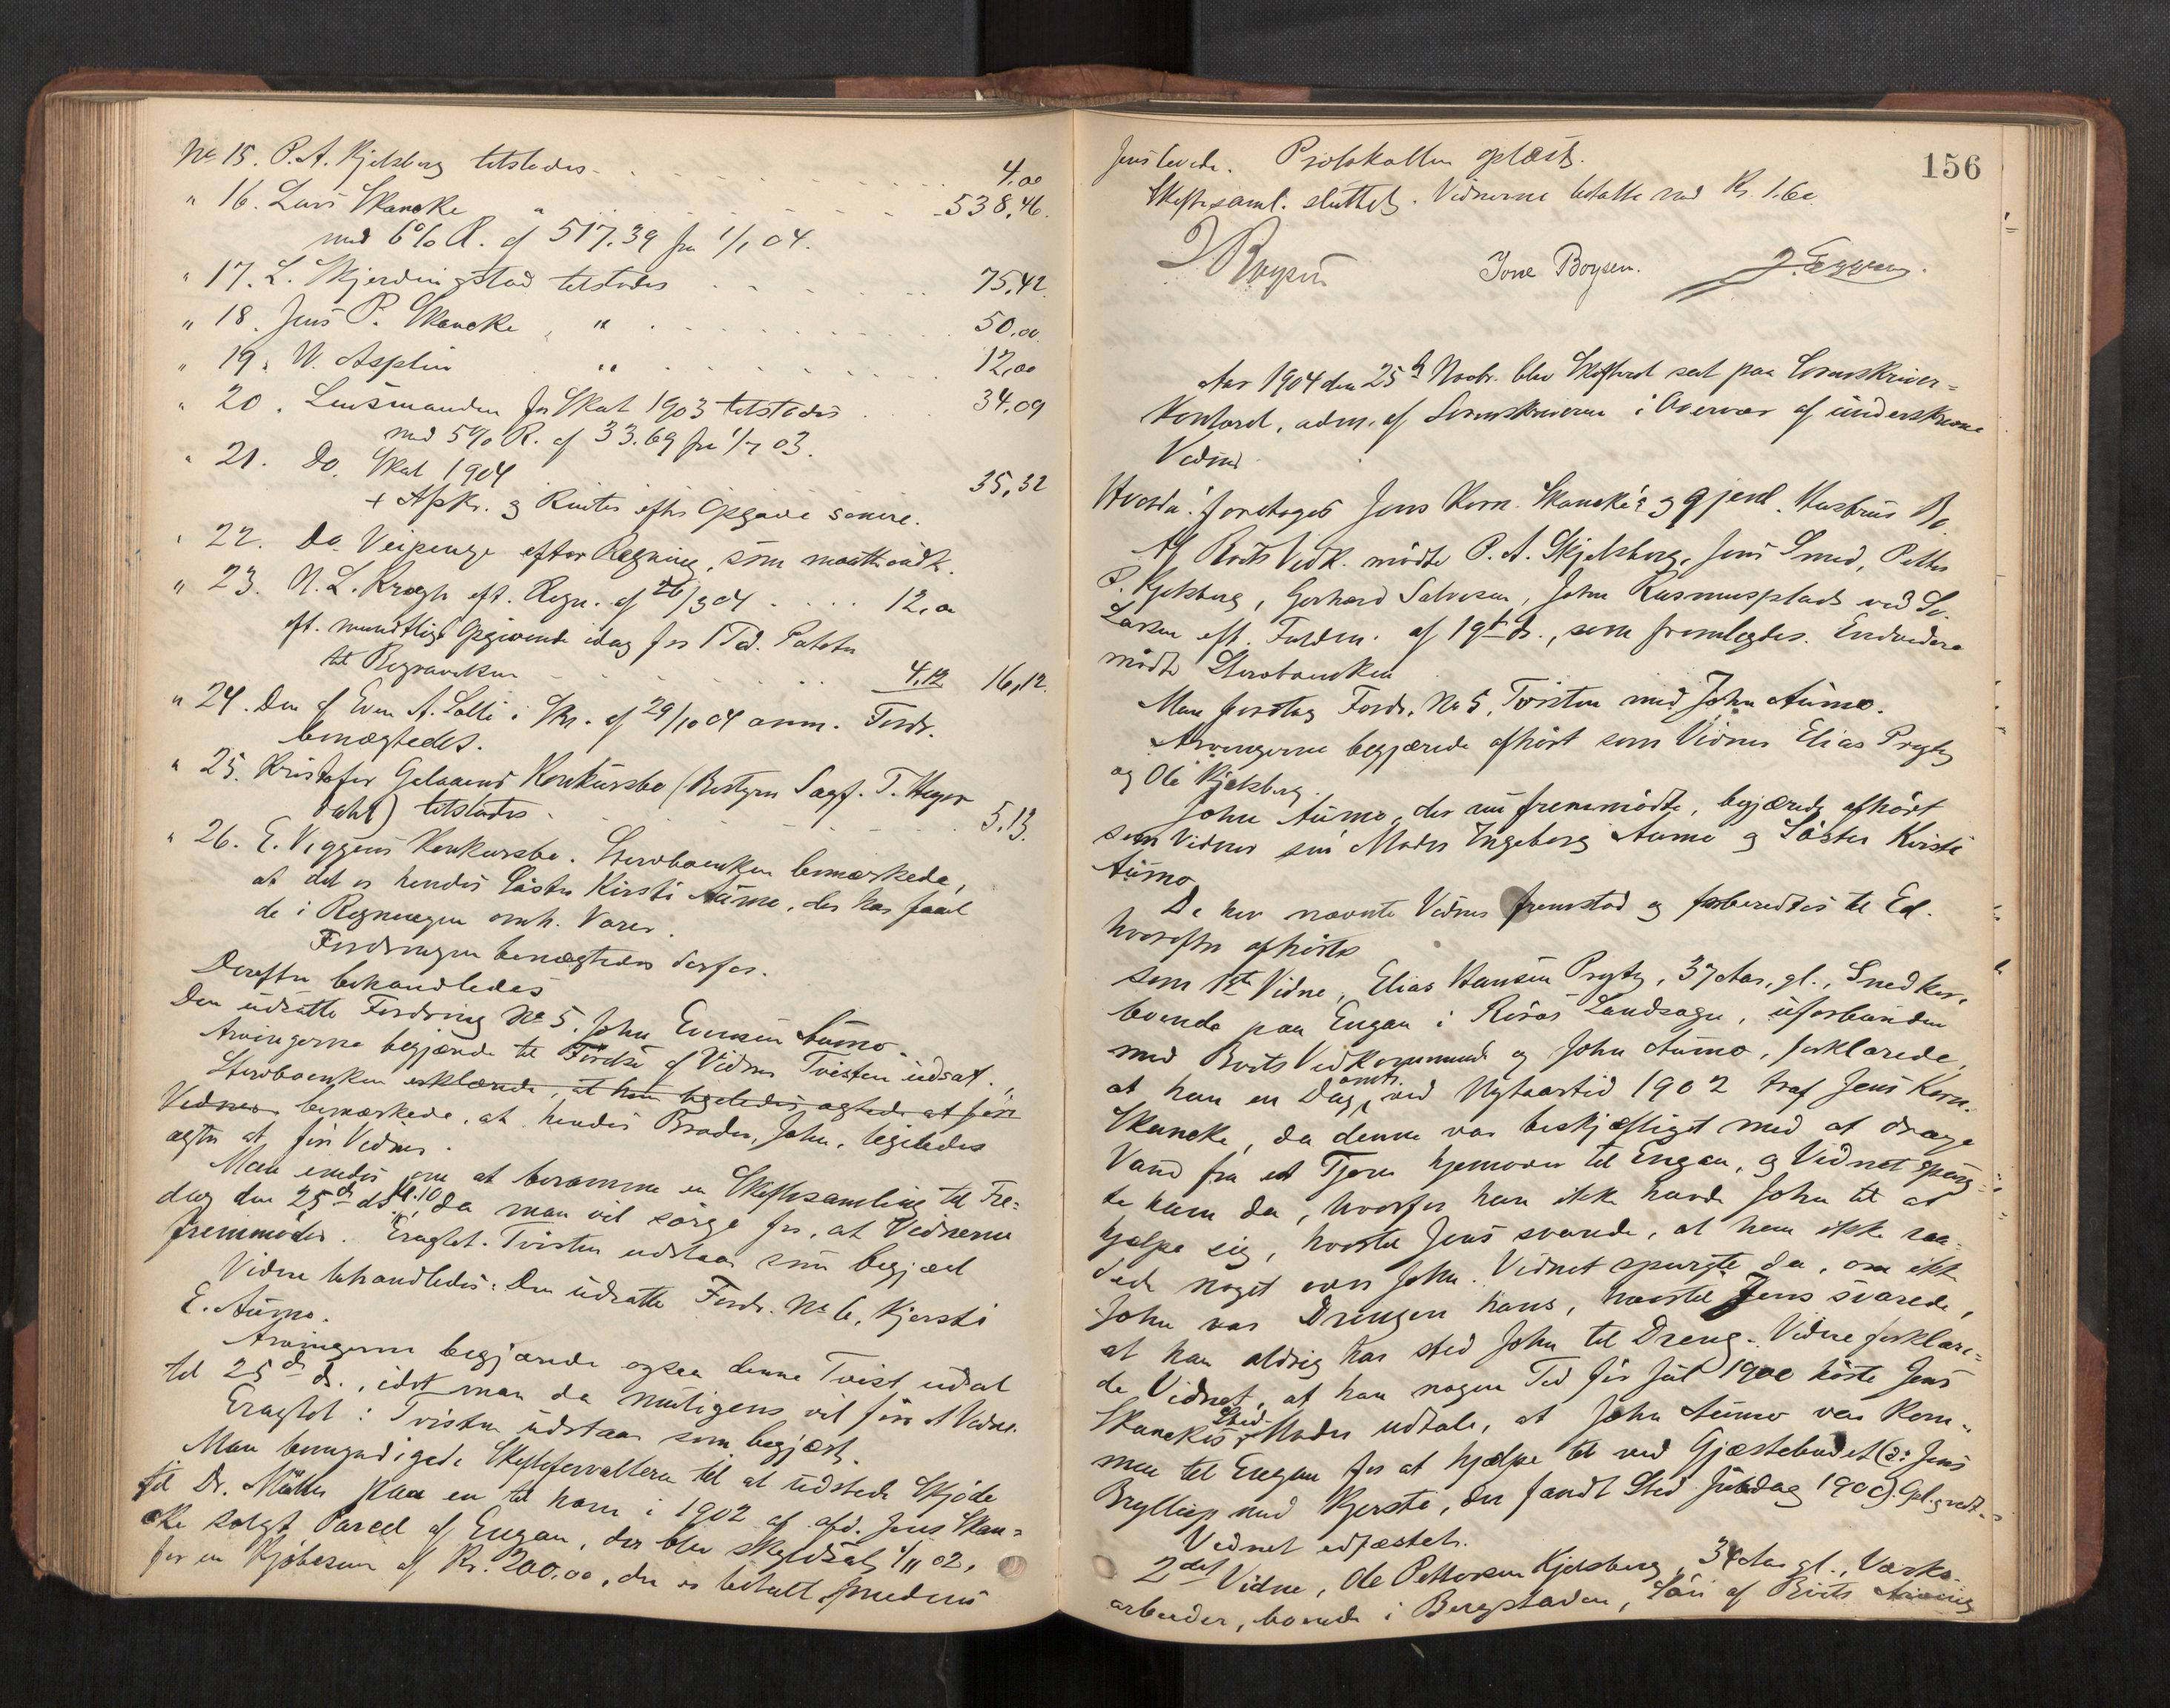 No 15. P. A. Kjelsberg tilstedes. 4,00
" 16. Lars Skancke " 538,46.
med 6% R. af 517,39 fra 1/1 04.
" 17. L. Skjerdingstad tilstedes 75,42.
" 18. Jens P. Skancke " 50,00.
" 19. W. Asplin " 12,00
" 20. Lensmanden for Skat 1903 tilstedes 34,09
med 5% R. af 33.69 fra 1/7 03.
" 21. Do. Skat 1904 35,32
+ Afkr. og Renter efter Opgave senere.
" 22. Do. Veipenge efter Regning, som maatte indk.
" 23. N. L. Krogh eft. Regn. af 26/9 04 12,00
eft. mundtligt Opgivende idag for 1 Td. Poteter
til Begravelsen 4,12 16,12.
" 24. Den af Even A. Solli i Skr. af 29/10 04 anm. Fordr.
benægtedes.
" 25. Kristofer Gelaaens Konkursbo (Bestyrer Sagf. T. Heyer
dahl) tilstedes 5,13.
" 26. E. Viggens Konkursbo. Stervboenken bemærkede,
at det er hendes Söster Kirsti Aumo, der har faaet
de i Regningen omh. Varer.
Fordringen benægtedes derfor.
Derefter behandledes
Den udsatte Fordring No 5. John Evensen Aumo.
Arvingerne begjærede til Förelse af Vidner Tvisten udsat.
Stervboenken erklærede, at hun ligeledes agtede at före
Vidner bemærkede, at hendes Broder, John, ligeledes
agter at före Vidner.
Man enedes om at beramme en Skiftesamling til Fre-
dag den 25de ds. Kl. 10, da man vil sörge for, at Vidnerne
fremmöder. Eragtet. Tvisten udstaar som begjært
Videre behandledes: Den udsatte Fordr. No 6, Kjersti
E. Aumo.
Arvingerne begjærede ogsaa denne Tvist udsat
til 25de ds., idet man da muligens vil före et Vidne.
Eragtet: Tvisten udstaar som begjært.
Man bemyndigede Skifteforvalteren til at udstede Skjöde
til Dr. Müller paa en til ham i 1902 af afd. Jens Skan-
cke solgt Parcel af Engan, der blev skyldsat 1/11 02,
for en Kjöbesum af Kr. 200.00, der er betalt, medens
156
Jens levede. Protokollen oplæst.
Skiftesaml. sluttet. Vidnerne betalte med Kr. 1.60.
Boysen Tove Boysen. J. Eggen.
Aar 1904 den 25de Novbr. blev Skifteret sat paa Sorenskriver-
kontoret, adm. af Sorenskriveren i Overvær af underskrevne
Vidner
Hvorda: foretoges Jens Korn. Skancke's og gjenl. Hustrus Bo.
Af Boets Vedk. mödte P. A. Kjelsberg, Jens Smed, Petter
P. Kjelsberg, Gerhard Salvesen, John Rasmusplads ved Sv.
Larsen eft. Fuldm. af 19de ds., som fremlagdes. Endvidere
mödte Stervboenken
Man foretog Fordr. No 5, Tvisten med John Aumo.
Arvingerne begjærede afhört som Vidner Elias Prytz
og Ole Kjelsberg.
John Aumo, der nu fremmödte, begjærede afhört
som Vidner sin Moder Ingeborg Aumo og Söster Kirsti
Aumo
De her nævnte Vidner fremstod og forberedtes til Ed.
hvorefter afhörtes
som 1ste Vidne, Elias Hansen Prytz, 37 Aar gl., Snedker,
boende paa Engan i Röros Landsogn, uforbunden
med Boets Vedkommende og John Aumo, forklarede
at han en Dag omtr. ved Nytaarstid 1902 traf Jens Korn.
Skancke, da denne var beskjæftiget med at drage
Vand fra et Tjern hjemover til Engan, og Vidnet spurg-
te ham da, hvorfor han ikke havde John til at
hjelpe sig, hvortil Jens svarede, at han ikke raa-
dede noget over John. Vidnet spurgte da, om ikke
John var Drengen hans, hvortil Jens svarede,
at han aldrig har sted John til Dreng. Videre forklare-
de Vidnet, at han nogen Tid för Jul 1900 hörte Jens
Skanckes Sted-Moder udtale, at John Aumo var kom-
men til Engan for at hjelpe til ved Gjæstebudet (ɔ: Jens
Bryllup med Kjersti, der fandt Sted Juledag 1900). Opl. vedt.
Vidnet edfæstet.
2det Vidne, Ole Pettersen Kjelsberg, 34 Aar gl., Værks-
arbeider, boende i Bergstaden, Sön af Boets Arving